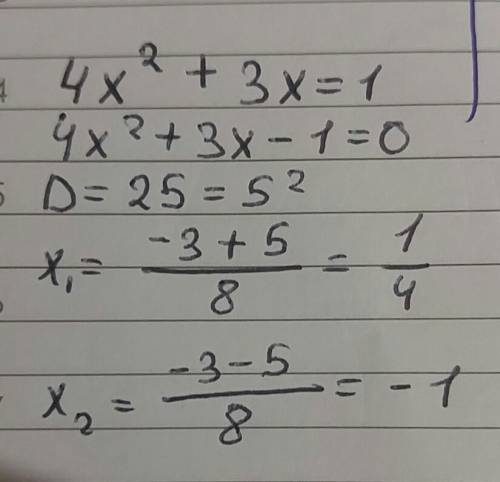 4x² + 3x = 1
4x² + 3x - 1 = 0
D = 25 = 5²
x₁ = (-3 + 5)/8 = 1/4
x₂ = (-3 - 5)/8 = -1